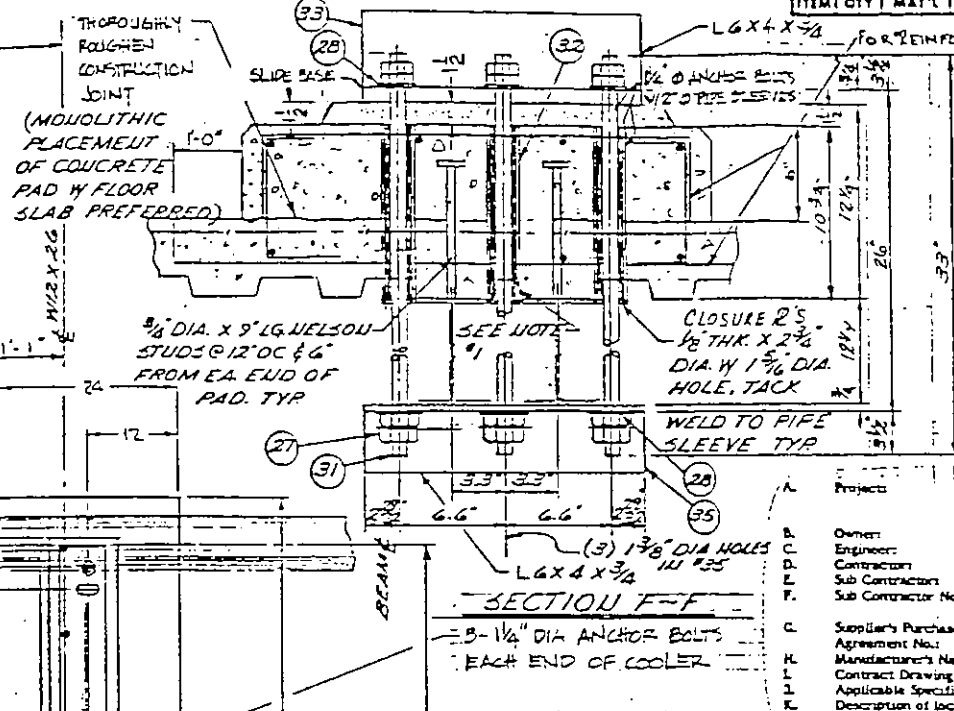 ITEM QTY MAT'L
THOROUGHLY
ROUGHEN
CONSTRUCTION
JOINT
(MONOLITHIC
PLACEMENT
OF CONCRETE
PAD W/ FLOOR
SLAB PREFERRED)
33
28
SLIDE BASE
1 1/2
1 1/2
32
L 6 X 4 X 3/4
FOR REINFO
1 1/4" Ø ANCHOR BOLTS
W/2" Ø PIPE SLEEVES
3/4
3 1/2"
1 1/2
1'-0"
10 3/4"
12 1/4"
26"
33"
W12 X 26
1'-1"
24
12
3/4" DIA. X 9" LG. NELSON
STUDS @ 12" OC & 6"
FROM EA. END OF
PAD. TYP.
SEE NOTE
#1
CLOSURE R'S
1/8 THK X 2 3/4"
DIA. W 1 5/16 DIA.
HOLE, TACK
WELD TO PIPE
SLEEVE TYP.
12 1/4
3/4
3 1/2"
27
31
28
35
3.3" 3.3"
6.6" 6.6"
BEAM
(3) 1 3/8" DIA HOLES
IN #35
L 6 X 4 X 3/4
SECTION F-F
3-1 1/4" DIA ANCHOR BOLTS
EACH END OF COOLER
A. Project:
B. Owner:
C. Engineer:
D. Contractor:
E. Sub Contractor:
F. Sub Contractor No
G. Supplier's Purchase
Agreement No.:
H. Manufacturer's Na
I. Contract Drawing
J. Applicable Specifi
K. Description of loc